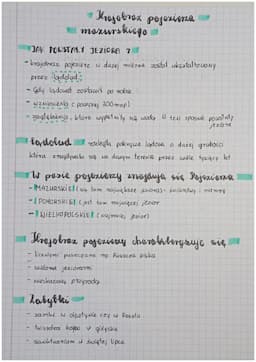 Krajobraz pojezierza
mazurskiego
JAK POWSTAŁY JEZIORA ?
- krajobraz pojezierzy w dużej mierze został ukształtowany
przez lądolód.
- Gdy lądolód zostawił po sobie
- wzniesienia ( powyżej 300 m npm )
- zagłębienia, które wypełniły się wodą w ten sposób powstały
jeziora
lądolód - rozległa pokrywa lodowa o dużej grubości
która znajdowała się na danym terenie przez wiele tysięcy lat
W pasie pojezierzy znajdują się Pojezierza
- MAZURSKIE ( są tam największe jeziora- śniardwy i mamry
- POMORSKIE ( jest tam najwięcej jezior
- WIELKOPOLSKIE ( najmniej jezior)
Krajobraz pojezierzy charakteryzuje się
- licznymi puszczami np. Puszcza Piska
- wieloma jeziorami
- nieskażoną przyrodą
Zabytki
- zamki w olsztynie czy w Reszlu
- twierdza boyen w giżycku
- sanktuarium w świętej lipce